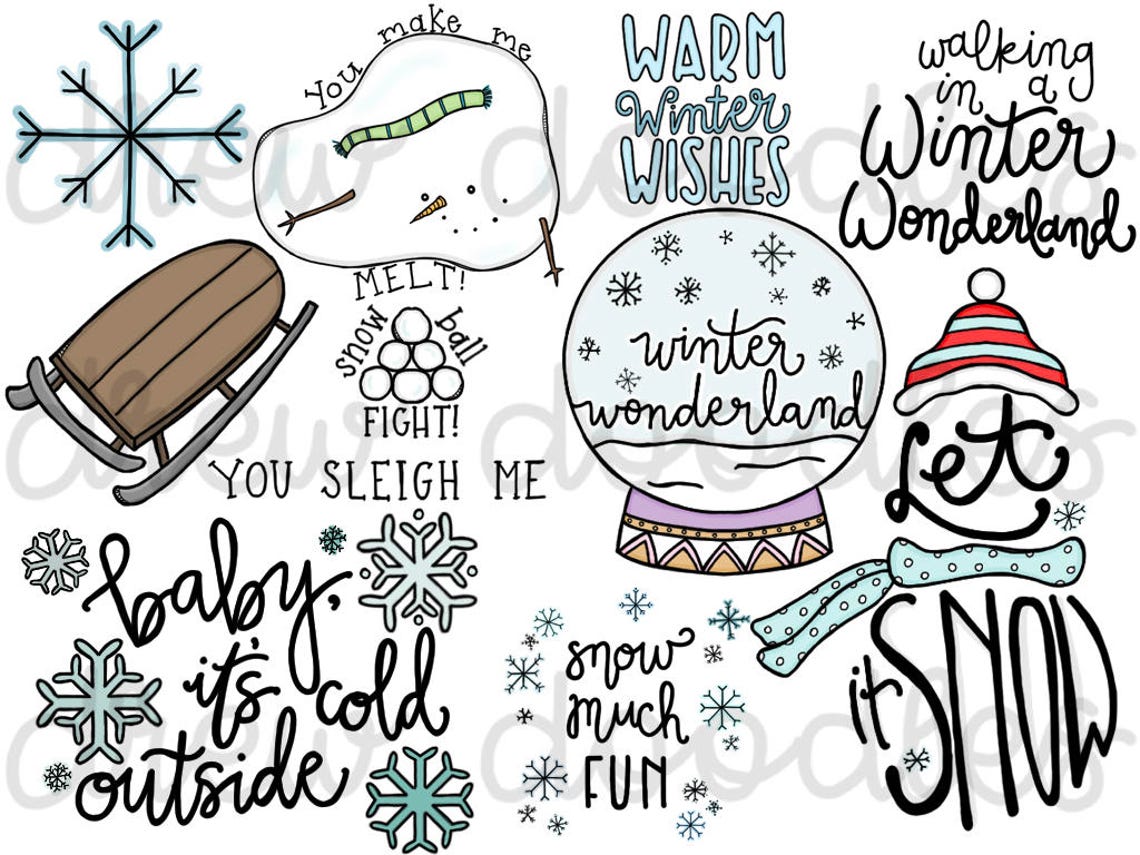 You make me
MELT!
WARM
Winter
WISHES
walking
in a
Winter
Wonderland
snow ball
FIGHT!
YOU SLEIGH ME
winter
wonderland
Let
it SNOW
baby,
it's cold
outside
snow
much
FUN
drew doodles
drew doodles
drew doodles
drew doodles